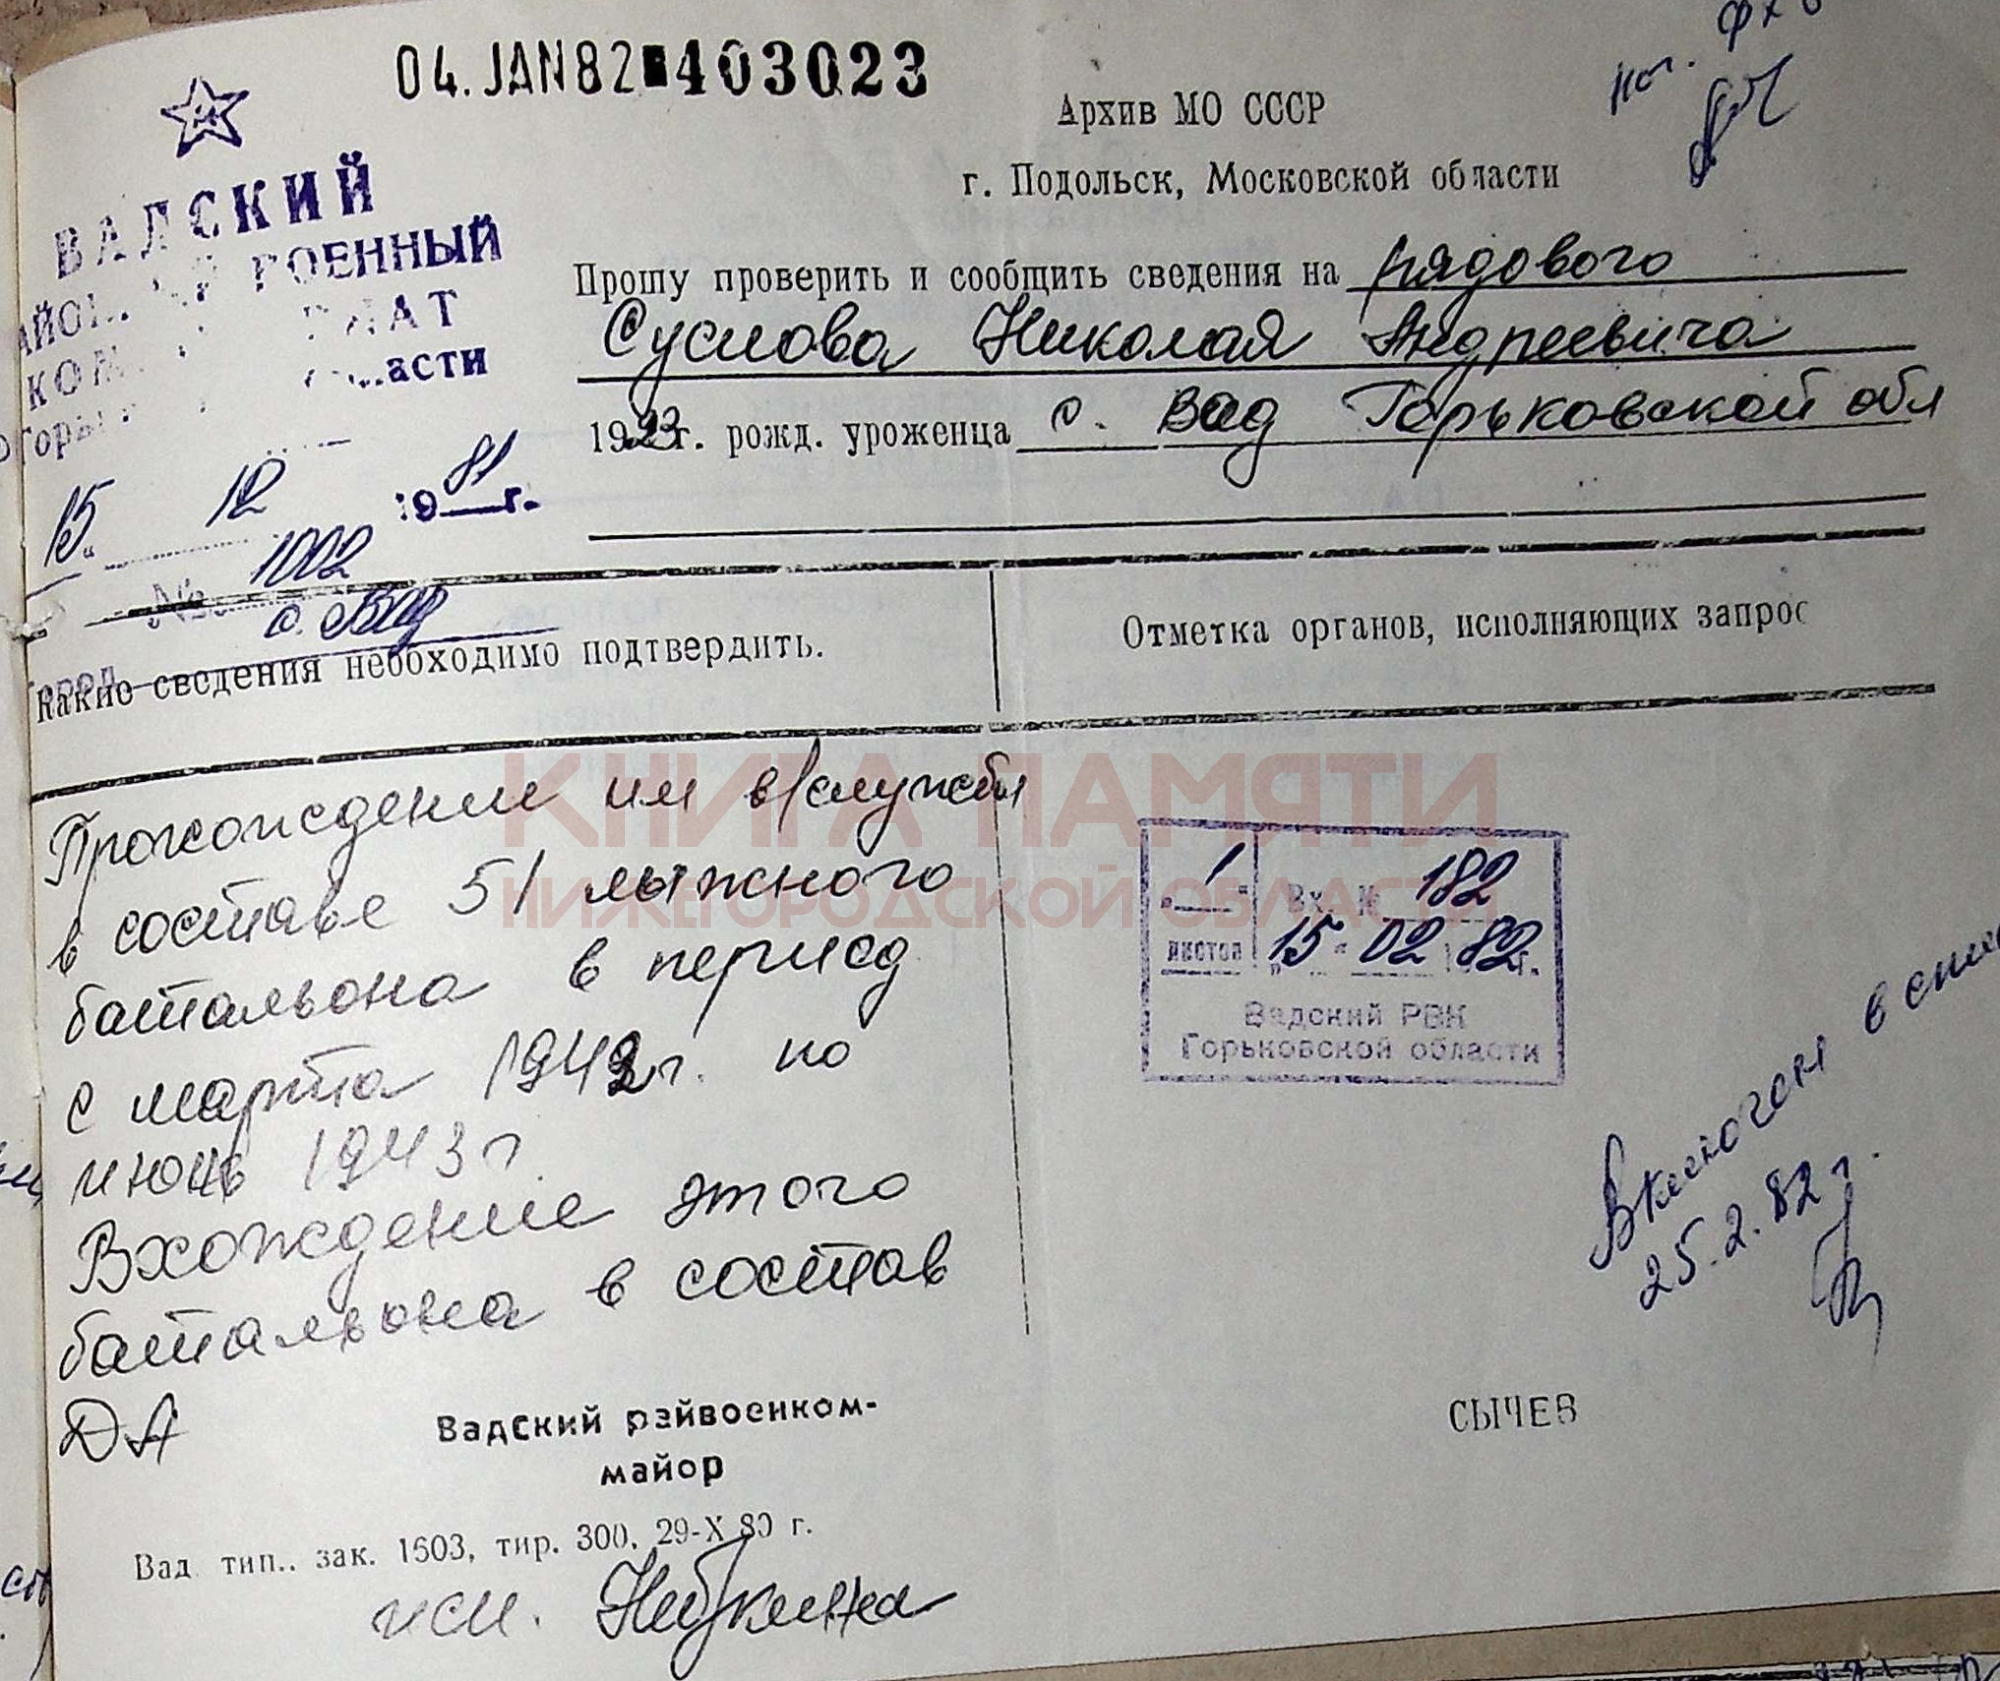 04. JAN 82 403023
Архив МО СССР
г. Подольск, Московской области
ВАДСКИЙ
ВОЕННЫЙ
15. 12 1981 г.
№ 1002
с. Вад
город
Прошу проверить и сообщить сведения на рядового
Суслова Николая Андреевича
1923 г. рожд. уроженца с. Вад Горьковской обл
Какие сведения необходимо подтвердить.
Отметка органов, исполняющих запрос
Прохождение им в/службы
в составе 51 лыжного
батальона в период
с марта 1942 г. по
июнь 1943 г.
Вхождение этого
батальона в состав
ДА
КНИГА ПАМЯТИ
НИЖЕГОРОДСКОЙ ОБЛАСТИ
1 Вх. № 182
листов 15 02 1982 г.
Вадский РВК
Горьковской области
Включен в
25.2.82 г.
Вадский райвоенком-
майор
СЫЧЕВ
Вад. тип.. зак. 1603, тир. 300, 29-X 80 г.
исп.